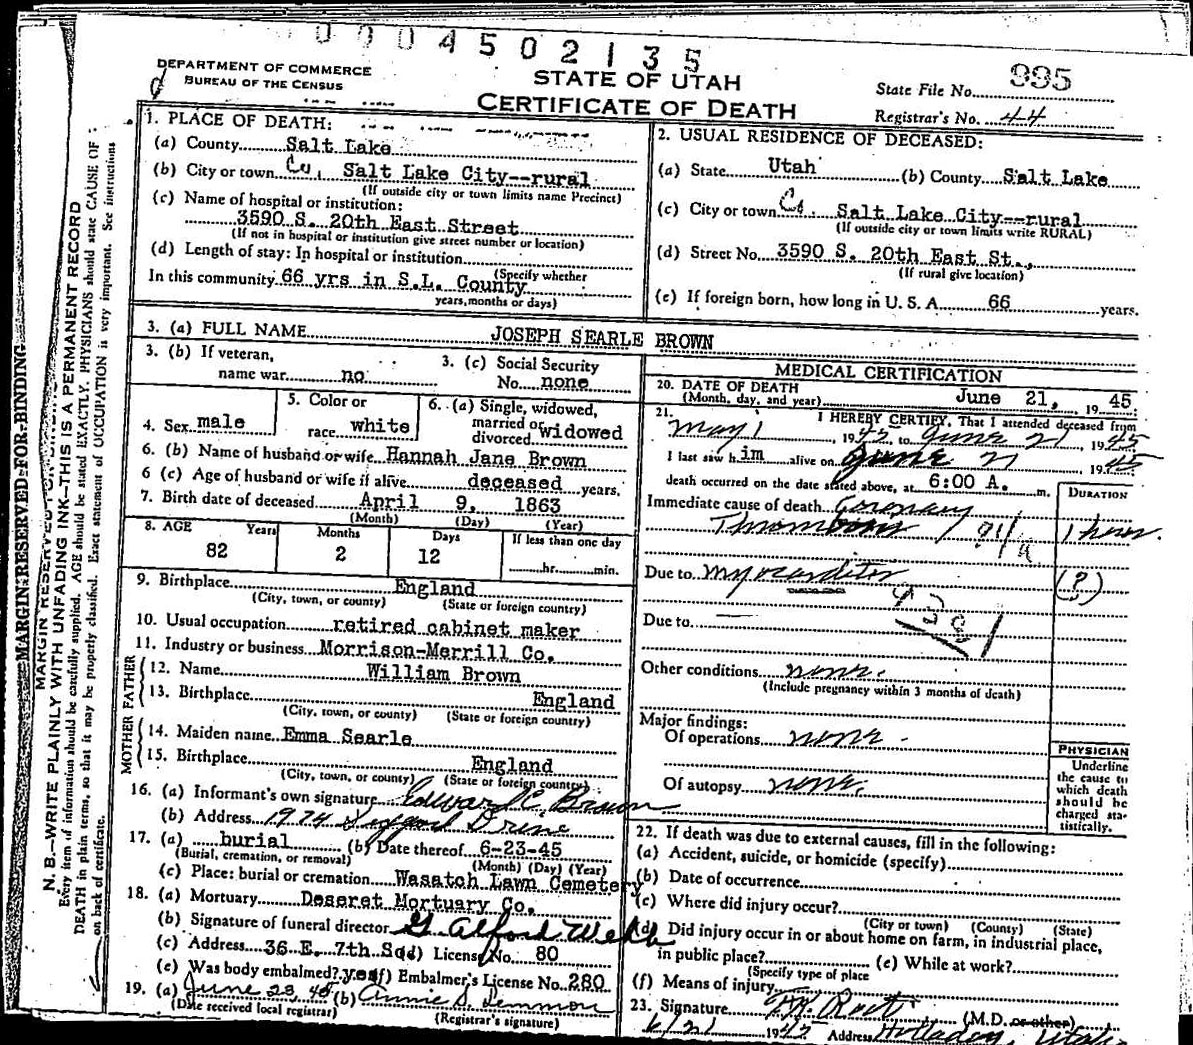 0004502135
DEPARTMENT OF COMMERCE
BUREAU OF THE CENSUS
STATE OF UTAH
CERTIFICATE OF DEATH
State File No. 995
Registrar's No. 44
1. PLACE OF DEATH:
(a) County Salt Lake
(b) City or town Co. Salt Lake City--rural
(If outside city or town limits name Precinct)
(c) Name of hospital or institution:
3590 S. 20th East Street
(If not in hospital or institution give street number or location)
(d) Length of stay: In hospital or institution
(Specify whether
In this community 66 yrs in S.L. County
years, months or days)
2. USUAL RESIDENCE OF DECEASED:
(a) State Utah (b) County Salt Lake
(c) City or town Co. Salt Lake City--rural
(If outside city or town limits write RURAL)
(d) Street No. 3590 S. 20th East St.,
(If rural give location)
(e) If foreign born, how long in U. S. A. 66 years.
3. (a) FULL NAME JOSEPH SEARLE BROWN
3. (b) If veteran,
name war no
3. (c) Social Security
No. none
4. Sex male
5. Color or
race white
6. (a) Single, widowed,
married or
divorced widowed
6. (b) Name of husband or wife Hannah Jane Brown
6 (c) Age of husband or wife if alive deceased years.
7. Birth date of deceased April 9, 1863
(Month) (Day) (Year)
8. AGE Years Months Days If less than one day
82 2 12 hr. min.
9. Birthplace England
(City, town, or county) (State or foreign country)
10. Usual occupation retired cabinet maker
11. Industry or business Morrison-Merrill Co.
FATHER
12. Name William Brown
13. Birthplace England
(City, town, or county) (State or foreign country)
MOTHER
14. Maiden name Emma Searle
15. Birthplace England
(City, town, or county) (State or foreign country)
16. (a) Informant's own signature Edward C. Brown
(b) Address 1974 Drive
17. (a) burial (b) Date thereof 6-23-45
(Burial, cremation, or removal) (Month) (Day) (Year)
(c) Place: burial or cremation Wasatch Lawn Cemetery
18. (a) Mortuary Deseret Mortuary Co.
(b) Signature of funeral director G. Alford Webb
(c) Address 36 E. 7th So. (d) License No. 80
(e) Was body embalmed? yes (f) Embalmer's License No. 280
19. (a) June 23, 45 (b) Annie S. Lemmon
(Date received local registrar) (Registrar's signature)
MEDICAL CERTIFICATION
20. DATE OF DEATH
(Month, day, and year) June 21, 1945.
21. I HEREBY CERTIFY, That I attended deceased from
May 1, 1945 to June 21 1945
I last saw him alive on June 21, 1945
death occurred on the date stated above, at 6:00 A. m.
DURATION
Immediate cause of death Coronary
Thrombosis 1 hour.
Due to myocarditis (?)
Due to —
Other conditions none.
(Include pregnancy within 3 months of death)
Major findings:
Of operations none.
Of autopsy none.
PHYSICIAN
Underline
the cause to
which death
should be
charged sta-
tistically.
22. If death was due to external causes, fill in the following:
(a) Accident, suicide, or homicide (specify)
(b) Date of occurrence
(c) Where did injury occur?
(City or town) (County) (State)
(d) Did injury occur in or about home on farm, in industrial place,
in public place? (e) While at work?
(Specify type of place
(f) Means of injury
23. Signature (M.D. or other)
6/21 1945 Address Holladay, Utah
MARGIN RESERVED FOR BINDING
N. B.—WRITE PLAINLY WITH UNFADING INK—THIS IS A PERMANENT RECORD
Every item of information should be carefully supplied. AGE should be stated EXACTLY. PHYSICIANS should state CAUSE OF
DEATH in plain terms, so that it may be properly classified. Exact statement of OCCUPATION is very important. See instructions
on back of certificate.